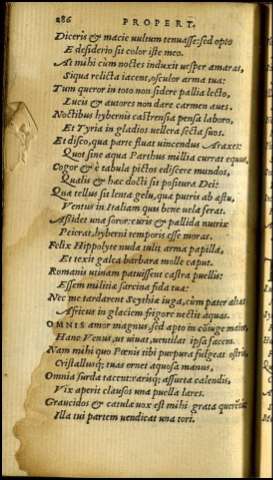 286 PROPERT.
Diceris & macie uultum tenuasse: sed opto
E desiderio sit color iste meo.
At mihi cùm noctes induxit uesper amaras,
Siqua relicta iacent, osculor arma tua:
Tum queror in toto non sidere pallia lecto,
Lucis & autores non dare carmen aues.
Noctibus hybernis castrensia pensa laboro,
Et Tyria in gladios uellera secta suos.
Et disco, qua parte fluat uincendus Araxes:
Quot sine aqua Parthus millia currat equus.
Cogor & è tabula pictos ediscere mundos,
Qualis & hæc docti sit positura Dei:
Qua tellus sit lenta gelu, quæ putris ab æstu,
Ventus in Italiam quis bene uela ferat.
Assidet una soror: curis & pallida nutrix
Peierat, hyberni temporis esse moras.
Felix Hippolyte nuda tulit arma papilla,
Et texit galea barbara molle caput.
Romanis utinam patuissent castra puellis:
Essem militiæ sarcina fida tuæ:
Nec me tardarent Scythiæ iuga, cùm pater altas
Africus in glaciem frigore nectit aquas.
OMNIS amor magnus, sed apto in cōiuge maior,
Hanc Venus, ut uiuat, uentilat ipsa facem.
Nam mihi quò Pœnis tibi purpura fulgeat ostris,
Crystallusq; tuas ornet aquosa manus,
Omnia surda tacent: rarisq; assueta calendis,
Vix aperit clausos una puella lares.
Graucidos & catulæ uox est mihi grata querētis:
Illa tui partem uendicat una tori.